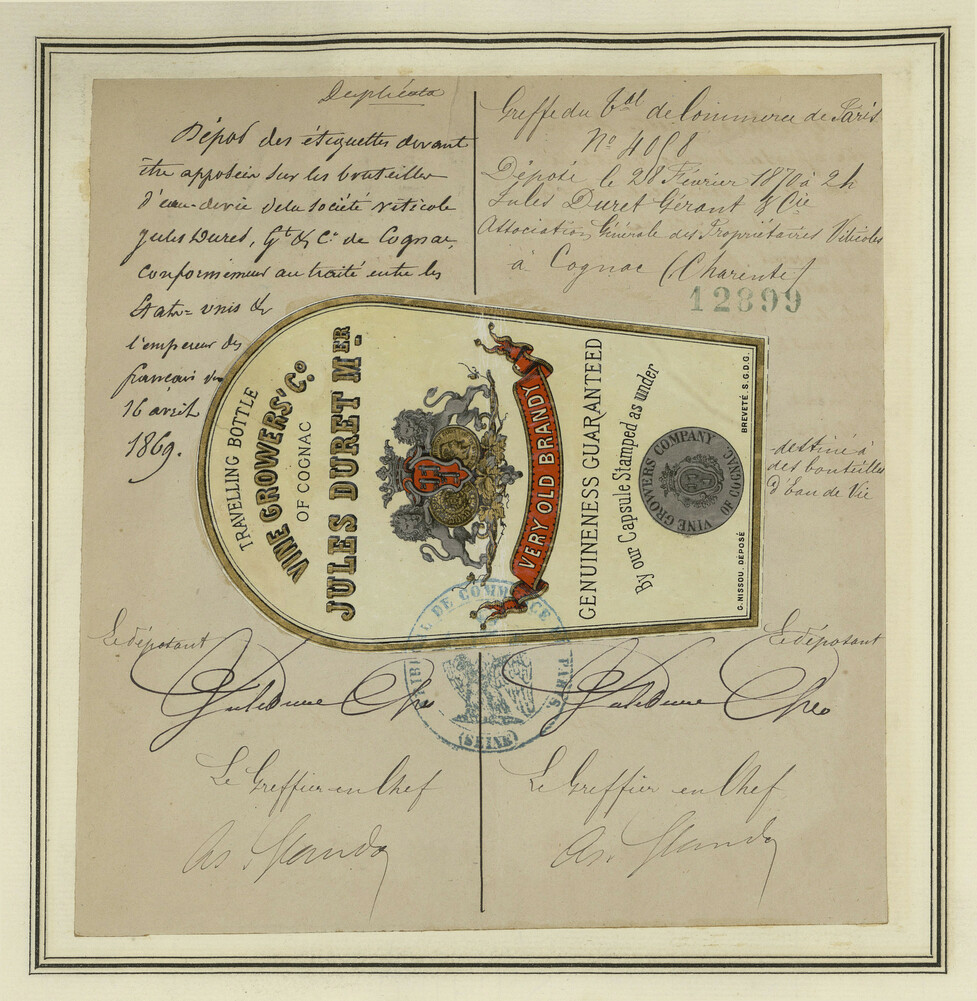 Duplicata
Dépot des étiquettes devant
être apposées sur les bouteilles
d'eau-de-vie de la société viticole
Jules Duret, Gt & Cie de Cognac,
conformément au traité entre les
États-unis &
l'empereur des
français du
16 avril
1869.
Greffe du Bal de Commerce de Paris
No 4098
Déposé le 28 Février 1870 à 2h
Jules Duret Gérant & Cie
Association Générale des Propriétaires Viticoles
à Cognac (Charente)
12899
TRAVELLING BOTTLE
VINE GROWERS' Co.
OF COGNAC
JULES DURET MER
VERY OLD BRANDY
GENUINENESS GUARANTED
By our Capsule Stamped as under
VINE GROWERS COMPANY
OF COGNAC
G. NISSOU. DÉPOSÉ
BREVETÉ. S.G.D.G.
destiné à
des bouteilles
d'Eau de Vie
Le déposant
Le déposant
TRIBUNAL DE COMMERCE
PARIS
(SEINE)
Jules Duret
Jules Duret
Le Greffier en Chef
Le Greffier en Chef